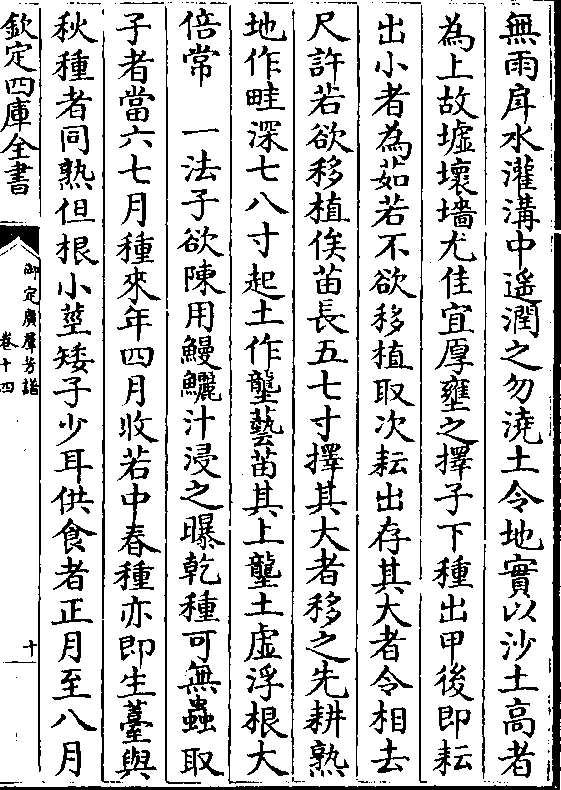 無雨戽水灌溝中遥潤之勿澆土令地實以沙土高者
為上故墟壞墻尤佳宜厚壅之擇子下種出甲後即耘
出小者為茹若不欲移植取次耘出存其大者令相去
尺許若欲移植俟苗長五七寸擇其大者移之先耕熟
地作畦深七八寸起土作壟藝苗其上壟土虚浮根大
倍常　一法子欲陳用鰻鱺汁浸之曝乾種可無蟲取
子者當六七月種來年四月收若中春種亦即生薹與
秋種者同熟但根小莖矮子少耳供食者正月至八月
欽定四庫全書
御定廣羣芳譜
卷十四
十